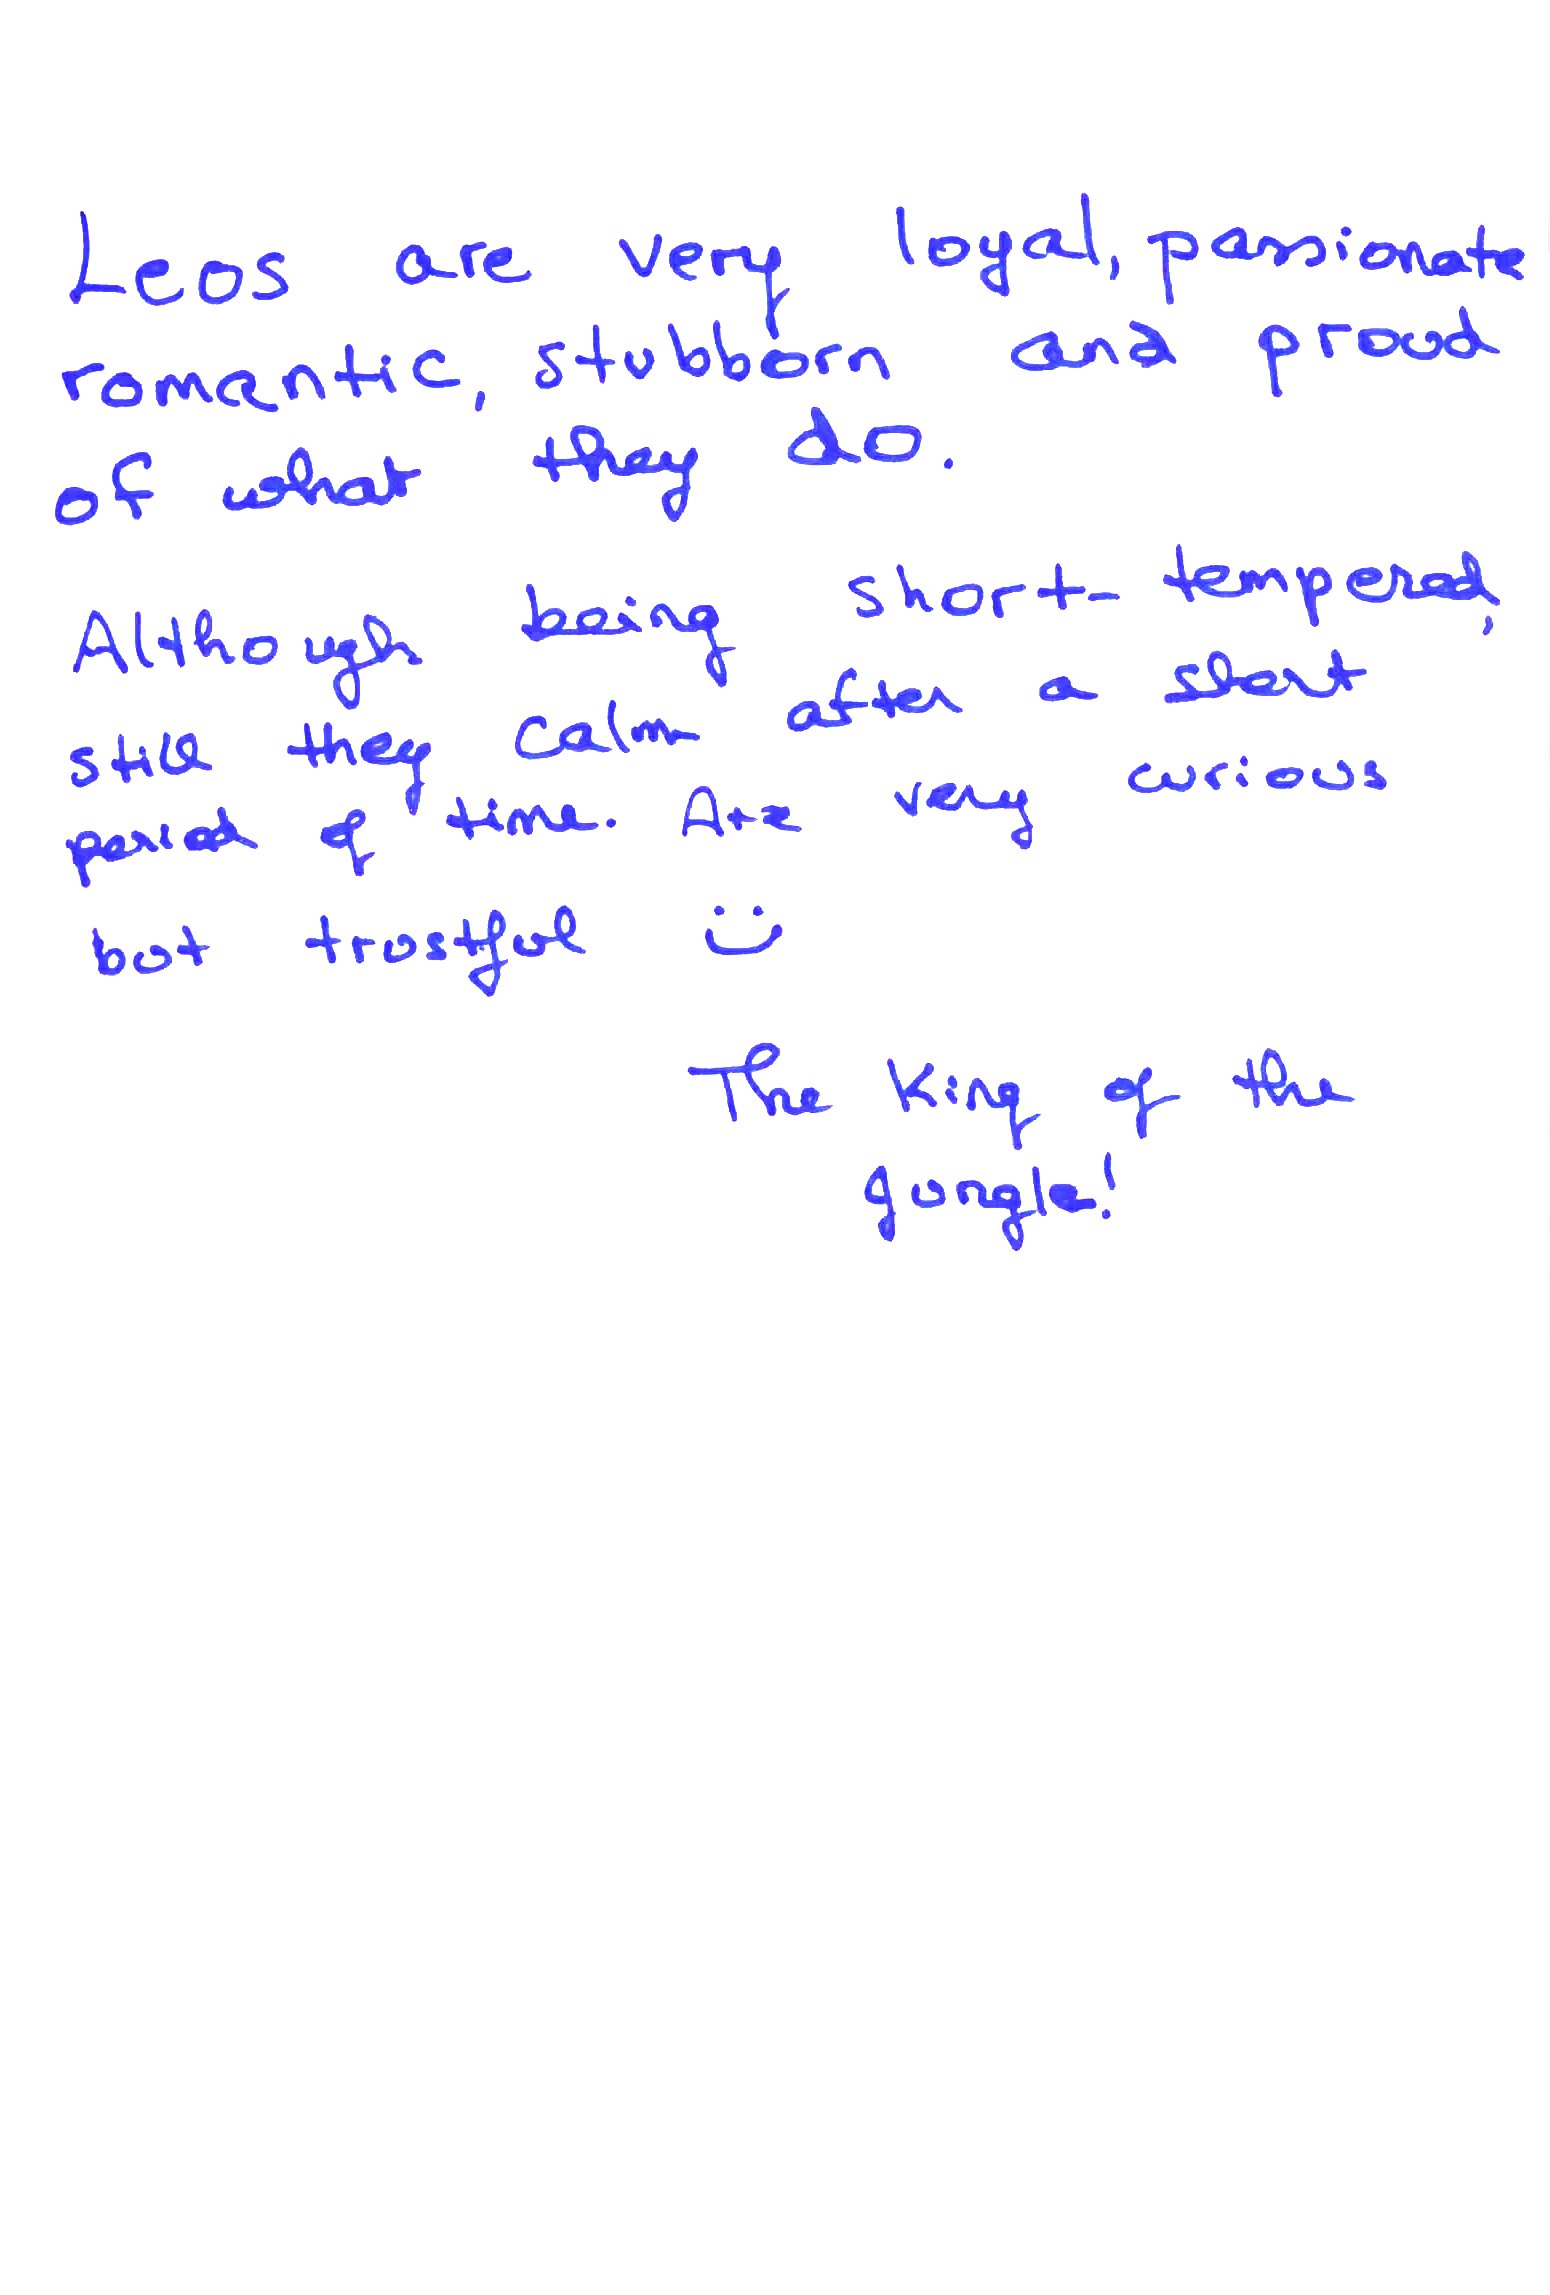 Leos are very loyal, passionate
romantic, stubborn and proud
of what they do.
Although being short-tempered,
still they calm after a short
period of time. Are very curious
but trustful :)
The King of the
jungle!